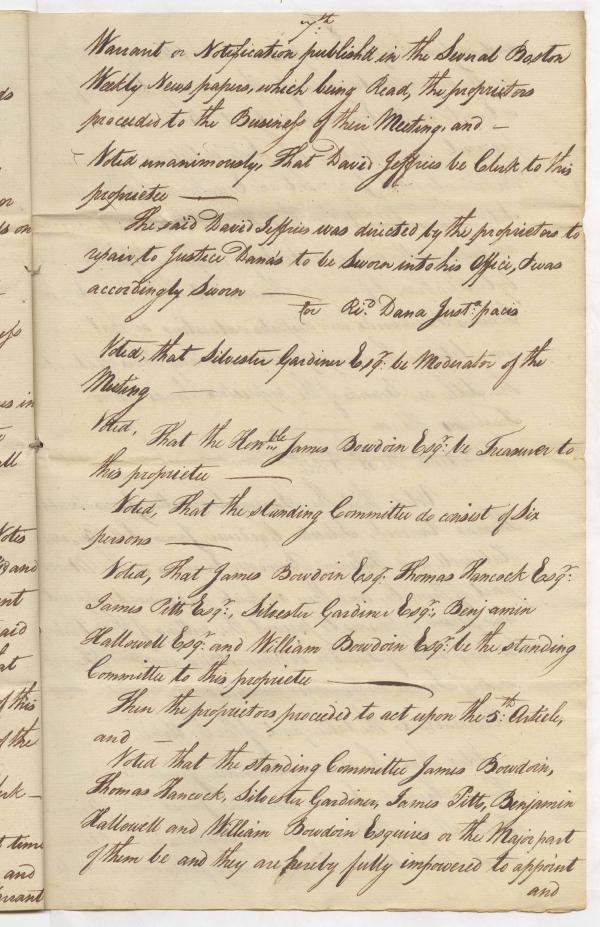 7th
Warrant or Notification publish'd in the Several Boston
Weekly News papers, which being Read, the proprietors
proceeded to the Business of their Meeting, and —
Voted unanimously, That David Jeffries be Clerk to this
proprietee —
The said David Jeffries was directed by the proprietors to
repair to Justice Dana's to be Sworn into his Office, & was
accordingly Sworn —
for Ri:d Dana Just:a pacis
Voted, that Silvester Gardiner Esqr: be Moderator of the
Meeting —
Voted, That the Honble James Bowdoin Esqr: be Treasurer to
this proprietee —
Voted, That the standing Committee do consist of Six
persons —
Voted, That James Bowdoin Esqr: Thomas Hancock Esqr:
James Pitts Esqr:, Silvester Gardiner Esqr:, Benjamin
Hallowell Esqr: and William Bowdoin Esqr: be the standing
Committee to this proprietee —
Then the proprietors proceeded to act upon the 5:th Article,
and —
Voted that the standing Committee James Bowdoin,
Thomas Hancock, Silvester Gardiner, James Pitts, Benjamin
Hallowell and William Bowdoin Esquires or the Major part
of them be and they are hereby fully impowered to appoint
and